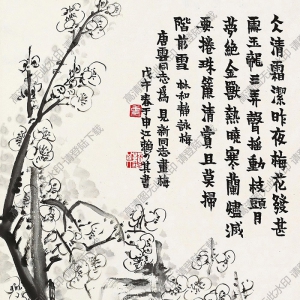 仌清霜潔昨夜梅花發甚
處玉龍三弄聲搖動枝頭月
夢絕金獸爇曉寒蘭燼滅
要捲珠簾清賞且莫掃
階前雪 林和靖詠梅
唐雲同志為見新同志畫梅
戊午春于申江其書